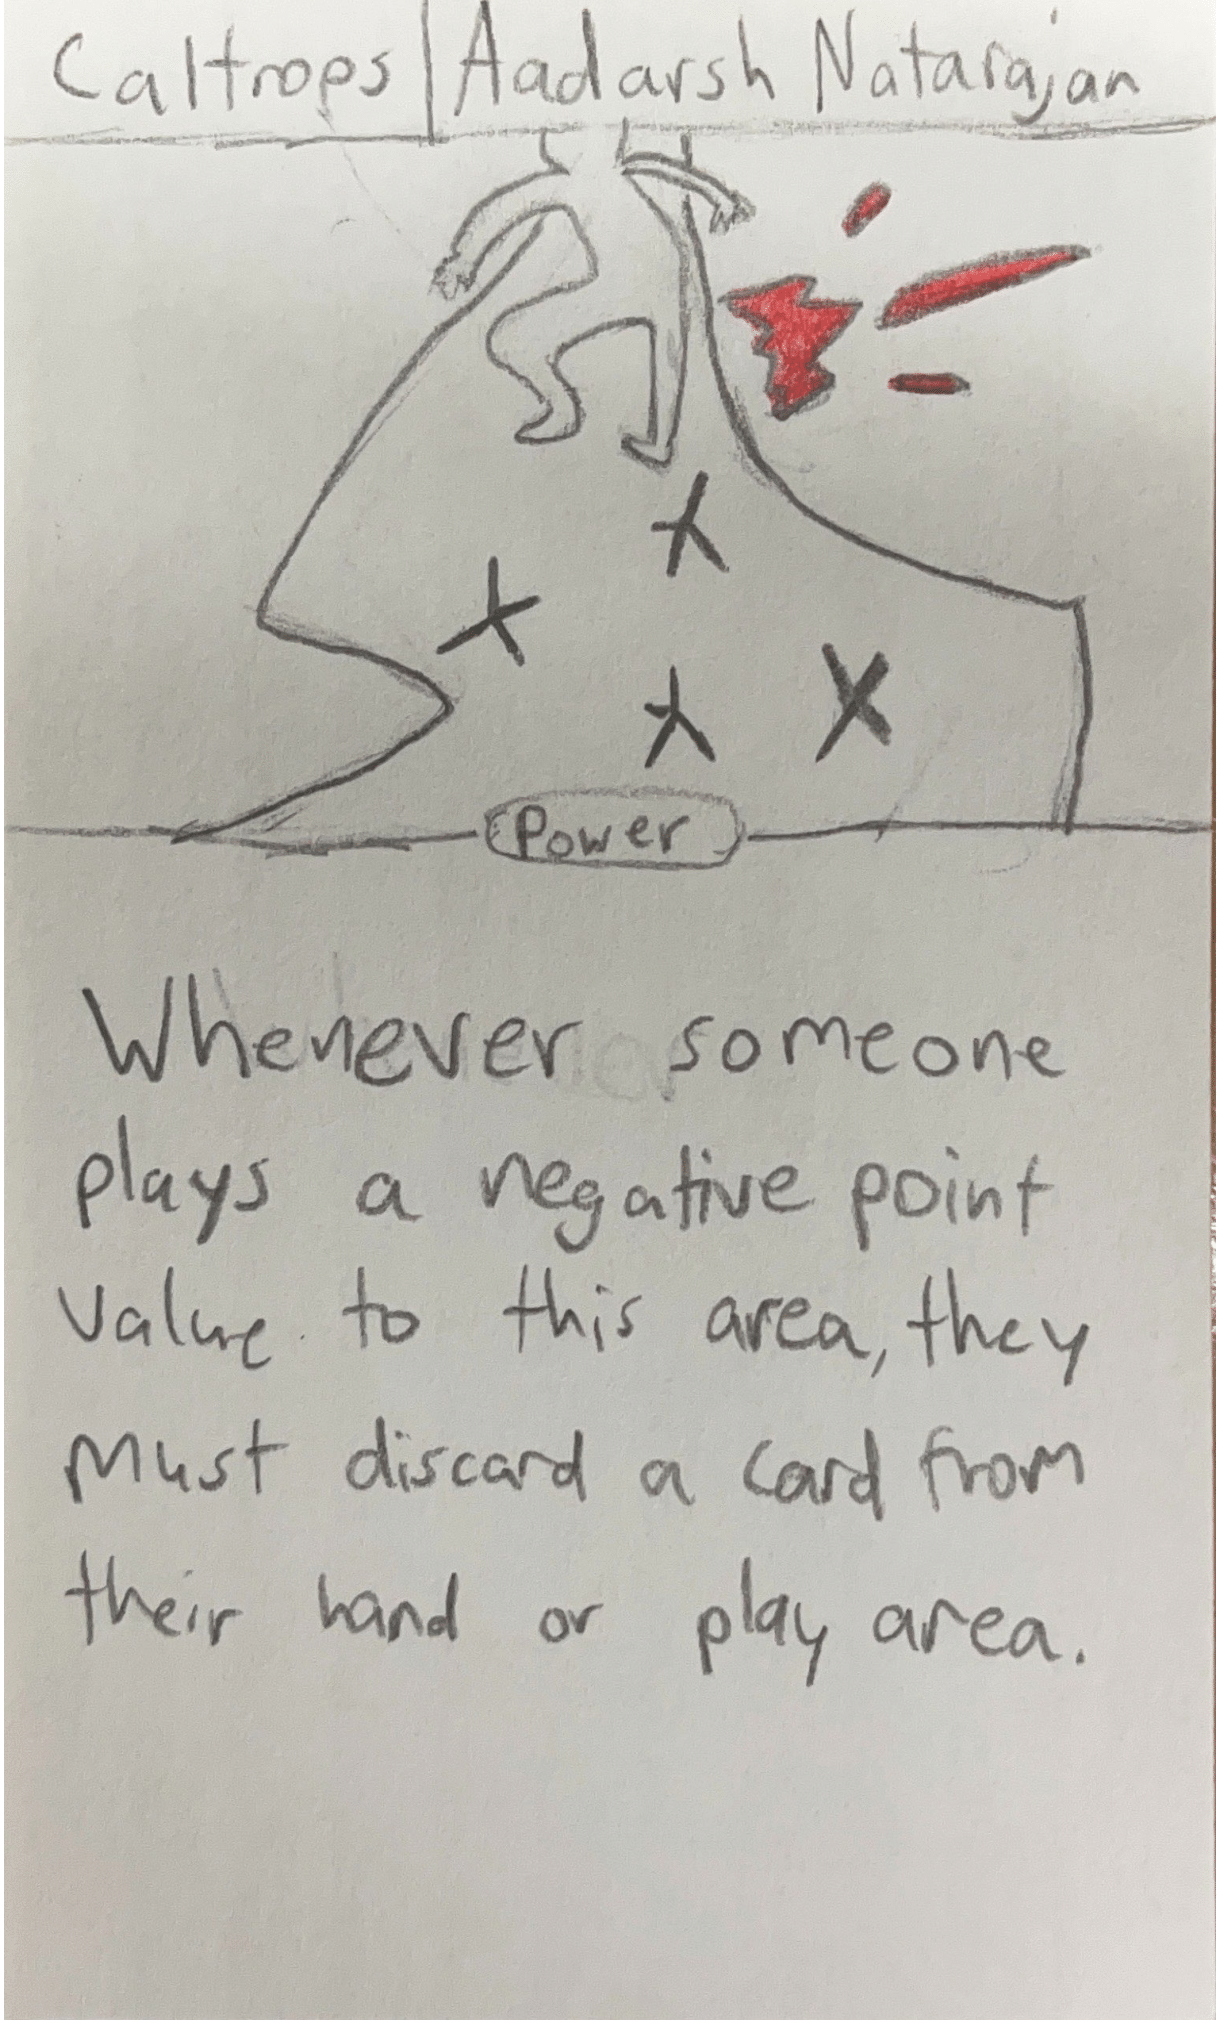 Caltrops | Aadarsh Natarajan
Power
Whenever someone
plays a negative point
value to this area, they
must discard a card from
their hand or play area.